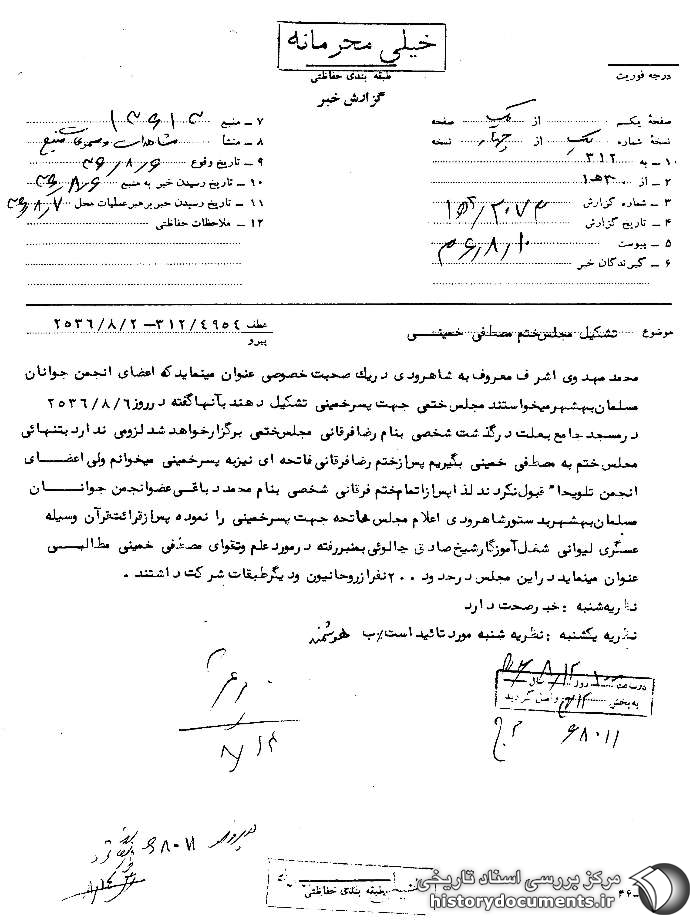 خیلی محرمانه
طبقه بندی حفاظتی
درجه فوریت
گزارش خبر
صفحه یکم از یک صفحه
نسخه شماره یک از چهار نسخه
۱ـ به ۳۱۲
۲ ـ از ۳۰۰ ه‍ ۱
۳ ـ شماره گزارش
۴ ـ تاریخ گزارش ۳۶٫۸٫۱۰
۵ ـ پیوست
۶ ـ گیرندگان خبر
۷ ـ منبع
۸ ـ منشأ مشاهدات و مسموعات منبع
۹ ـ تاریخ وقوع ۳۶٫۸٫۶
۱۰ ـ تاریخ رسیدن خبر به منبع ۳۶٫۸٫۶
۱۱ ـ تاریخ رسیدن خبر برهبر عملیات محل ۳۶٫۸٫۷
۱۲ ـ ملاحظات حفاظتی
موضوع تشکیل مجلس ختم مصطفی خمینـــی
عطف ۳۱۲/۴۹۵۴ – ۲۵۳۶/۸/۲
پیرو
محمد مهدوی اشرف معروف به شاهرودی دریك صحبت خصوصی عنوان مینماید که اعضای انجمن جوانان
مسلمان بهشهر میخواستند مجلس ختمی جهت پسر خمینی تشکیل دهند بآنها گفته در روز ۲۵۳۶/۸/۶
در مسجد جامع بعلت درگذشت شخصی بنام رضا فرقانی مجلس ختمی برگزار خواهد شد لزومی ندارد بتنهائی
مجلس ختم به مصطفی خمینی بگیریم پس از ختم رضا فرقانی فاتحه ای نیز به پسر خمینی میخوانم ولی اعضــای
انجمن تلویحا" قبول نکردند لذا پس از اتمام ختم فرقانی شخصی بنام محمد دباقی عضو انجمن جوانـــان
مسلمان بهشهر بدستور شاهرودی اعلام مجلس فاتحه جهت پسر خمینی را نموده پس از قرائت قرآن وسیله
عسگری لیوانی شغل آموزگار شیخ صادق جالوئی بمنبر رفته در مورد علم و تقوای مصطفی خمینی مطالبــی
عنوان مینماید در این مجلس در حدود ۲۰۰ نفر از روحانیون و دیگر طبقات شرکت داشتند .
نظریه شنبه : خبر صحت دارد
نظریه یکشنبه : نظریه شنبه مورد تائید است/ب هوشمند
در ساعت روز سال
به بخش ۳۱۲ واصل گردید
۸/۱۴
طبقه بندی حفاظتی
مرکز بررسی اسناد تاریخی
historydocuments.ir